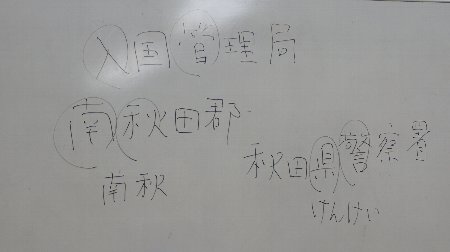 入国管理局
南秋田郡
南秋
秋田県警察署
けんけい